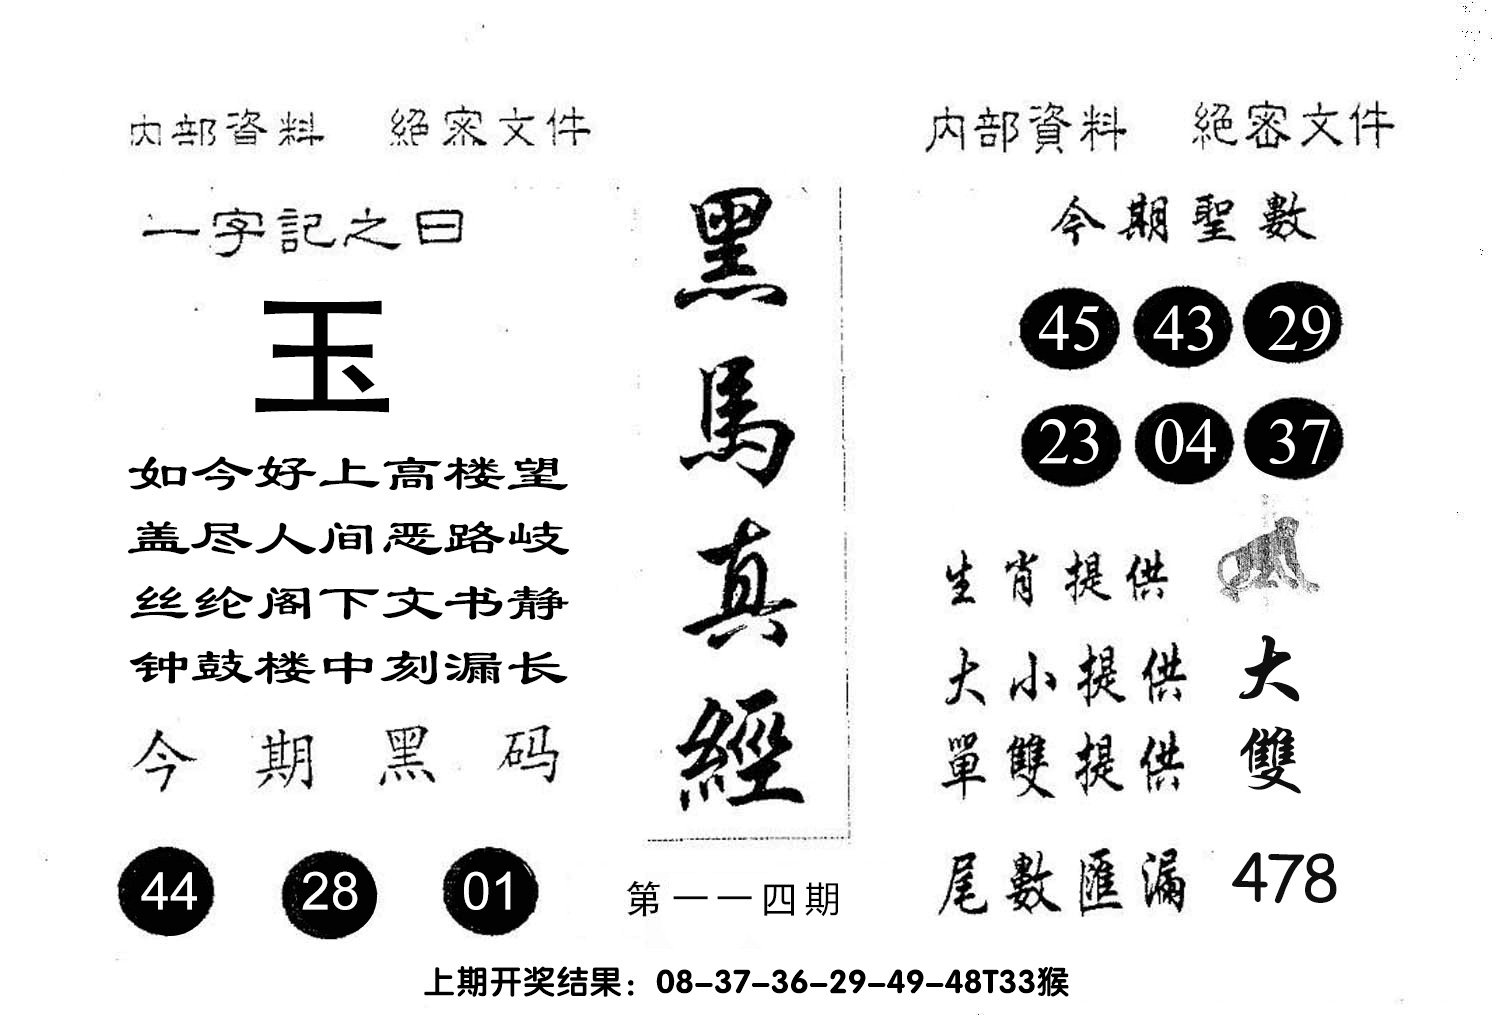 内部資料 絕密文件
一字記之曰
玉
如今好上高楼望
盖尽人间恶路岐
丝纶阁下文书静
钟鼓楼中刻漏长
今期黑码
44 28 01
黑馬真經
第一一四期
内部資料 絕密文件
今期聖數
45 43 29
23 04 37
生肖提供
大小提供 大
單雙提供 雙
尾數匯漏 478
上期开奖结果：08-37-36-29-49-48T33猴